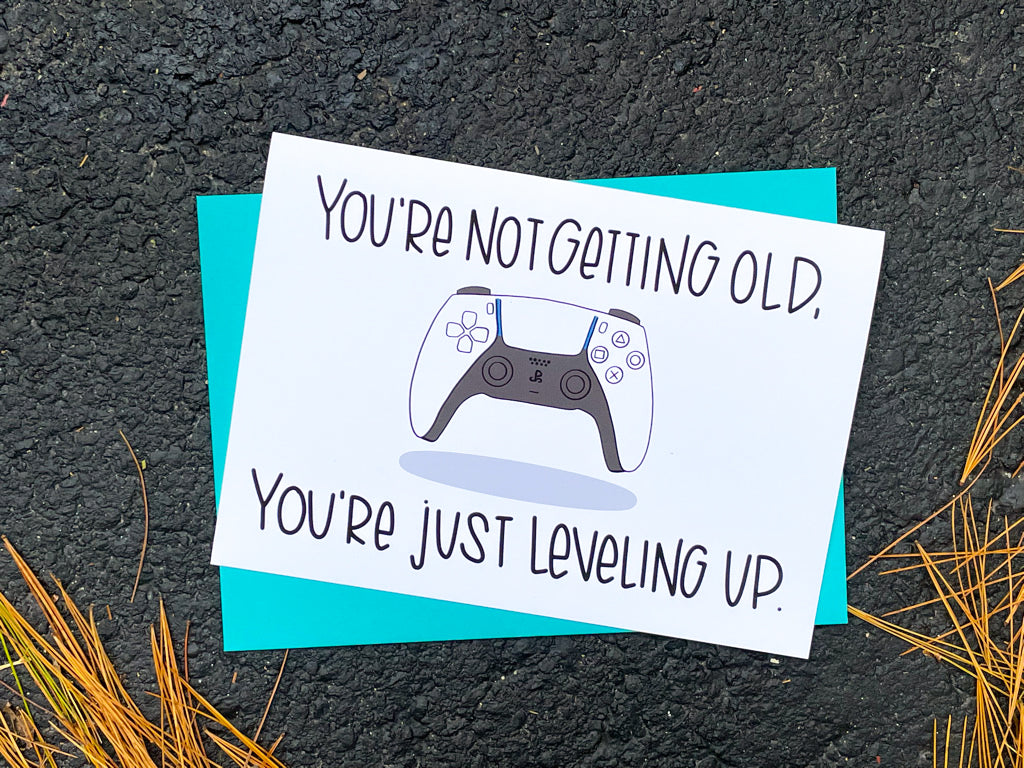 You're not getting old,
You're just leveling up.